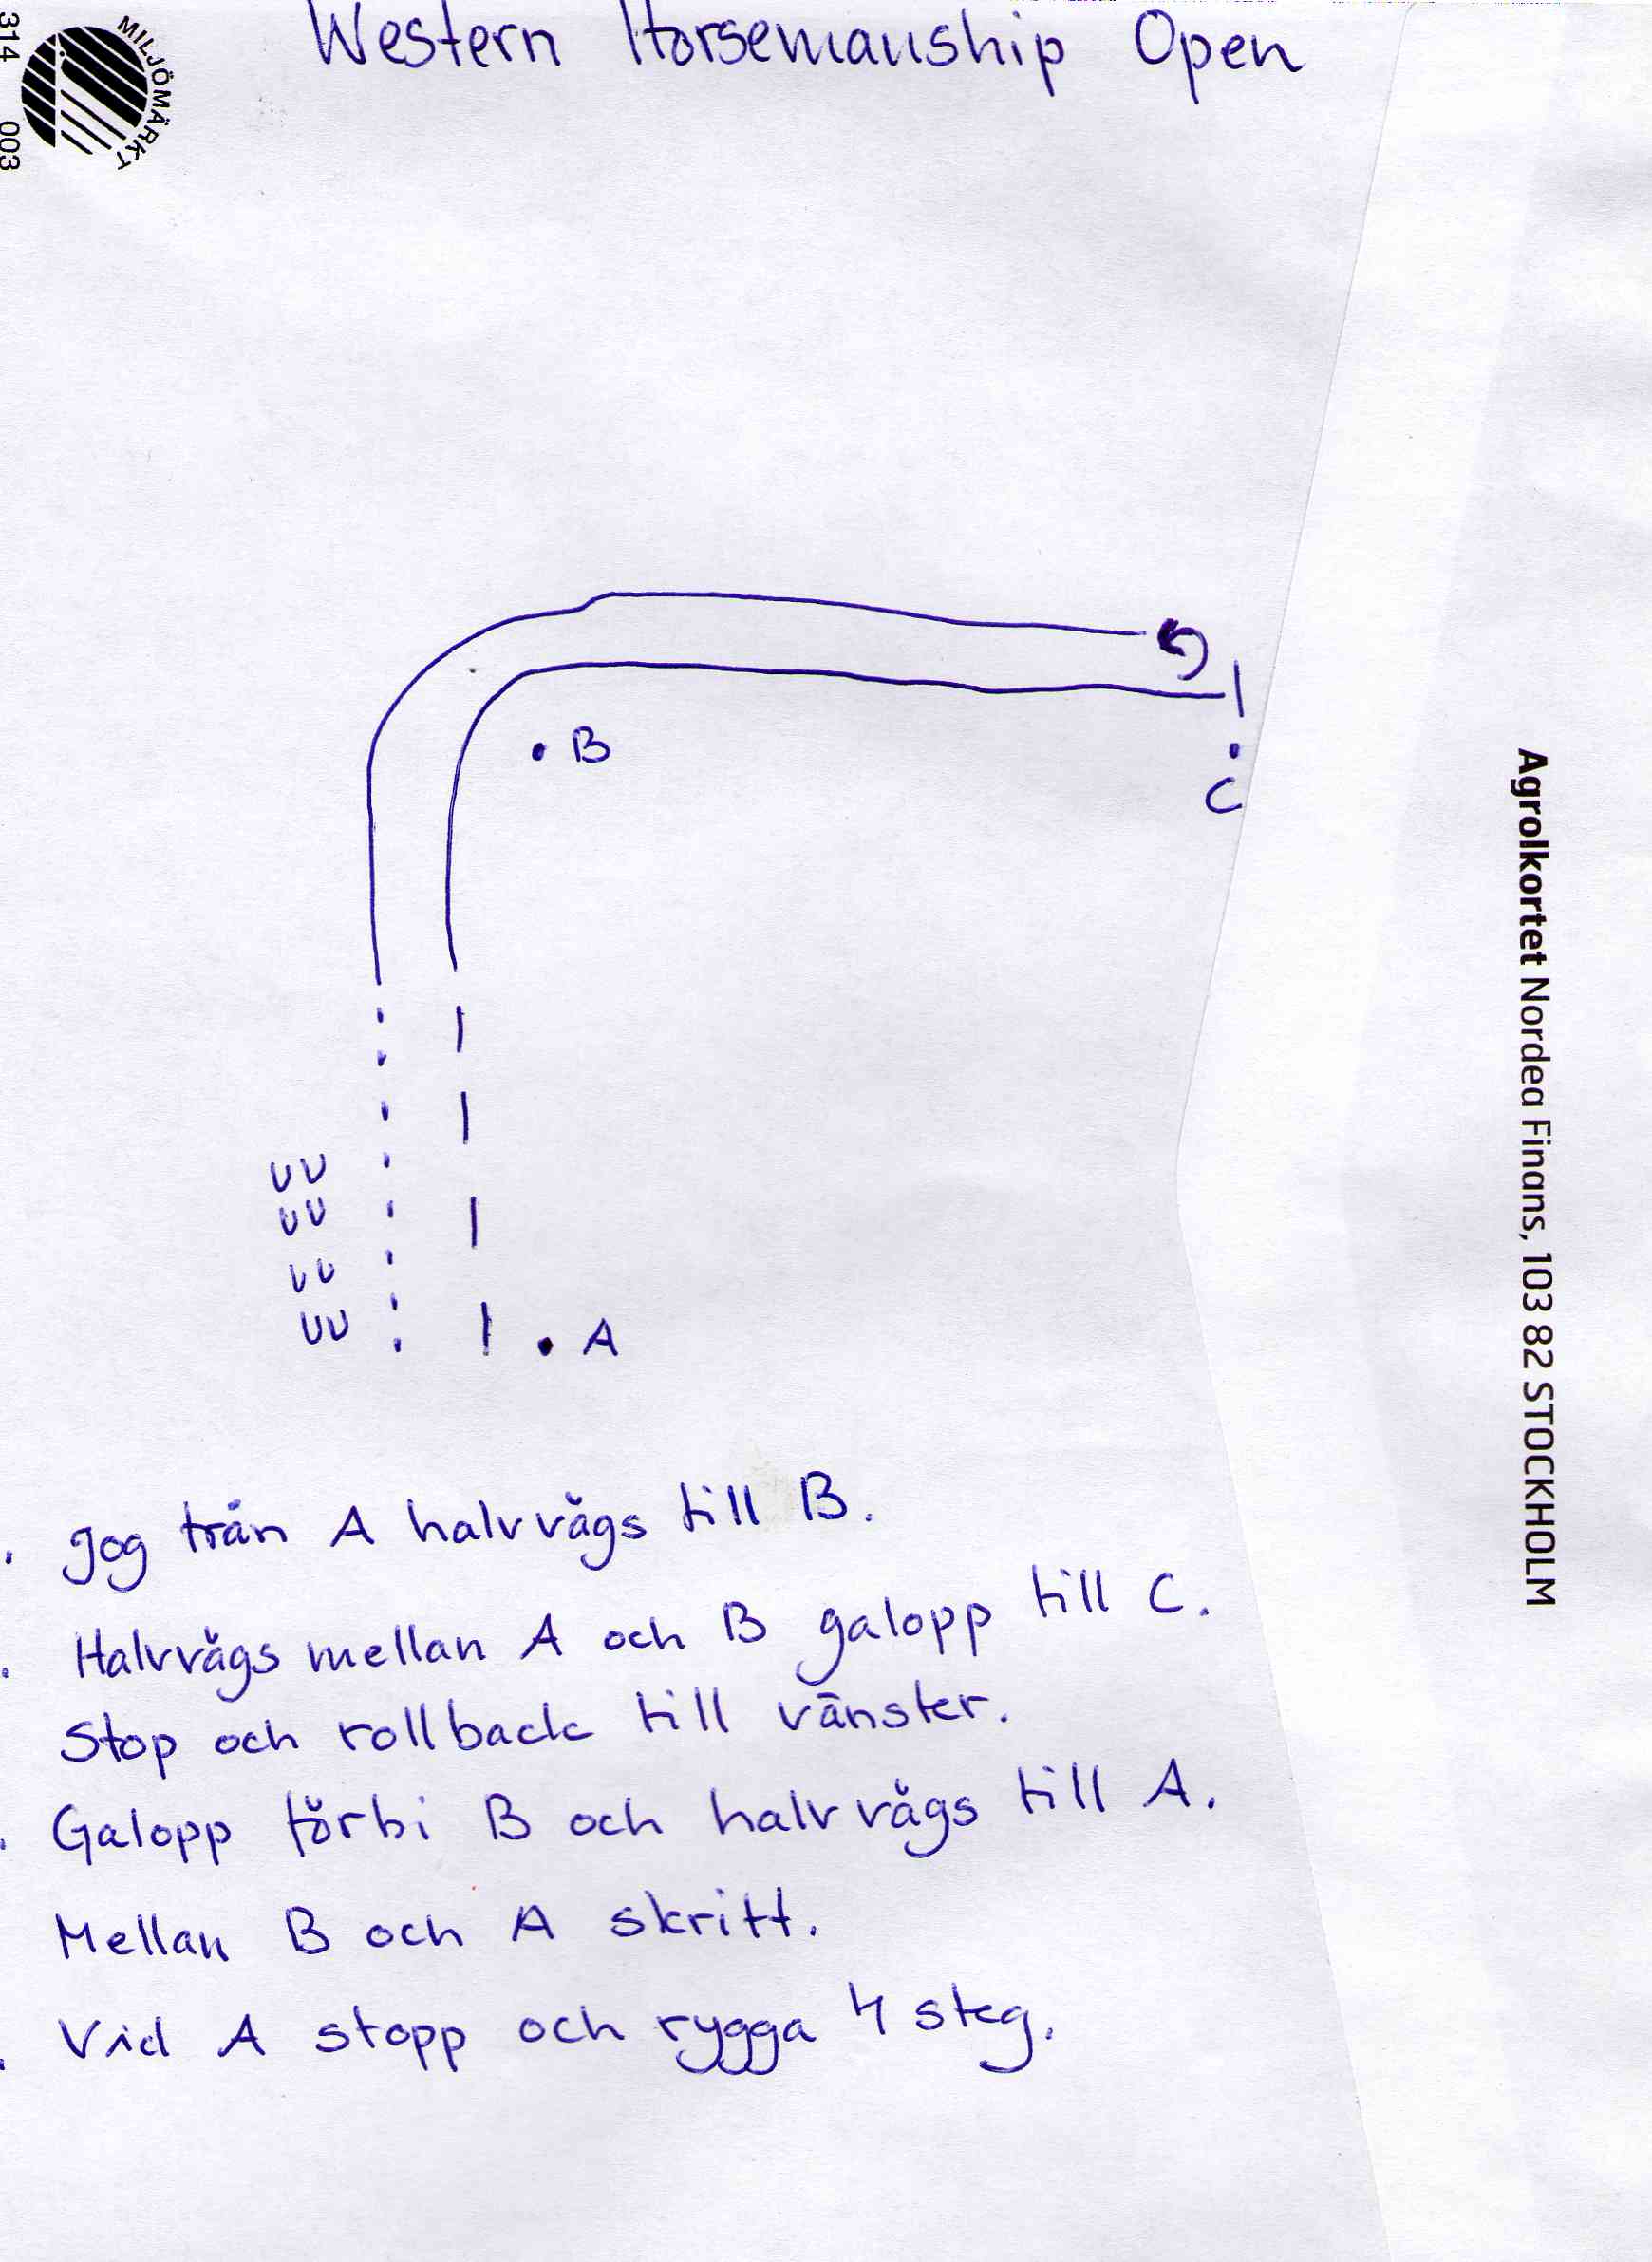 Western Horsemanship Open
MILJÖMÄRKT
314 003
B
C
UU
UU
UU
UU
A
Agrolkortet Nordea Finans, 103 82 STOCKHOLM
. Jog från A halvvägs till B.
. Halvvägs mellan A och B galopp till C.
Stop och rollback till vänster.
. Galopp förbi B och halvvägs till A.
Mellan B och A skritt.
. Vid A stopp och rygga 4 steg.